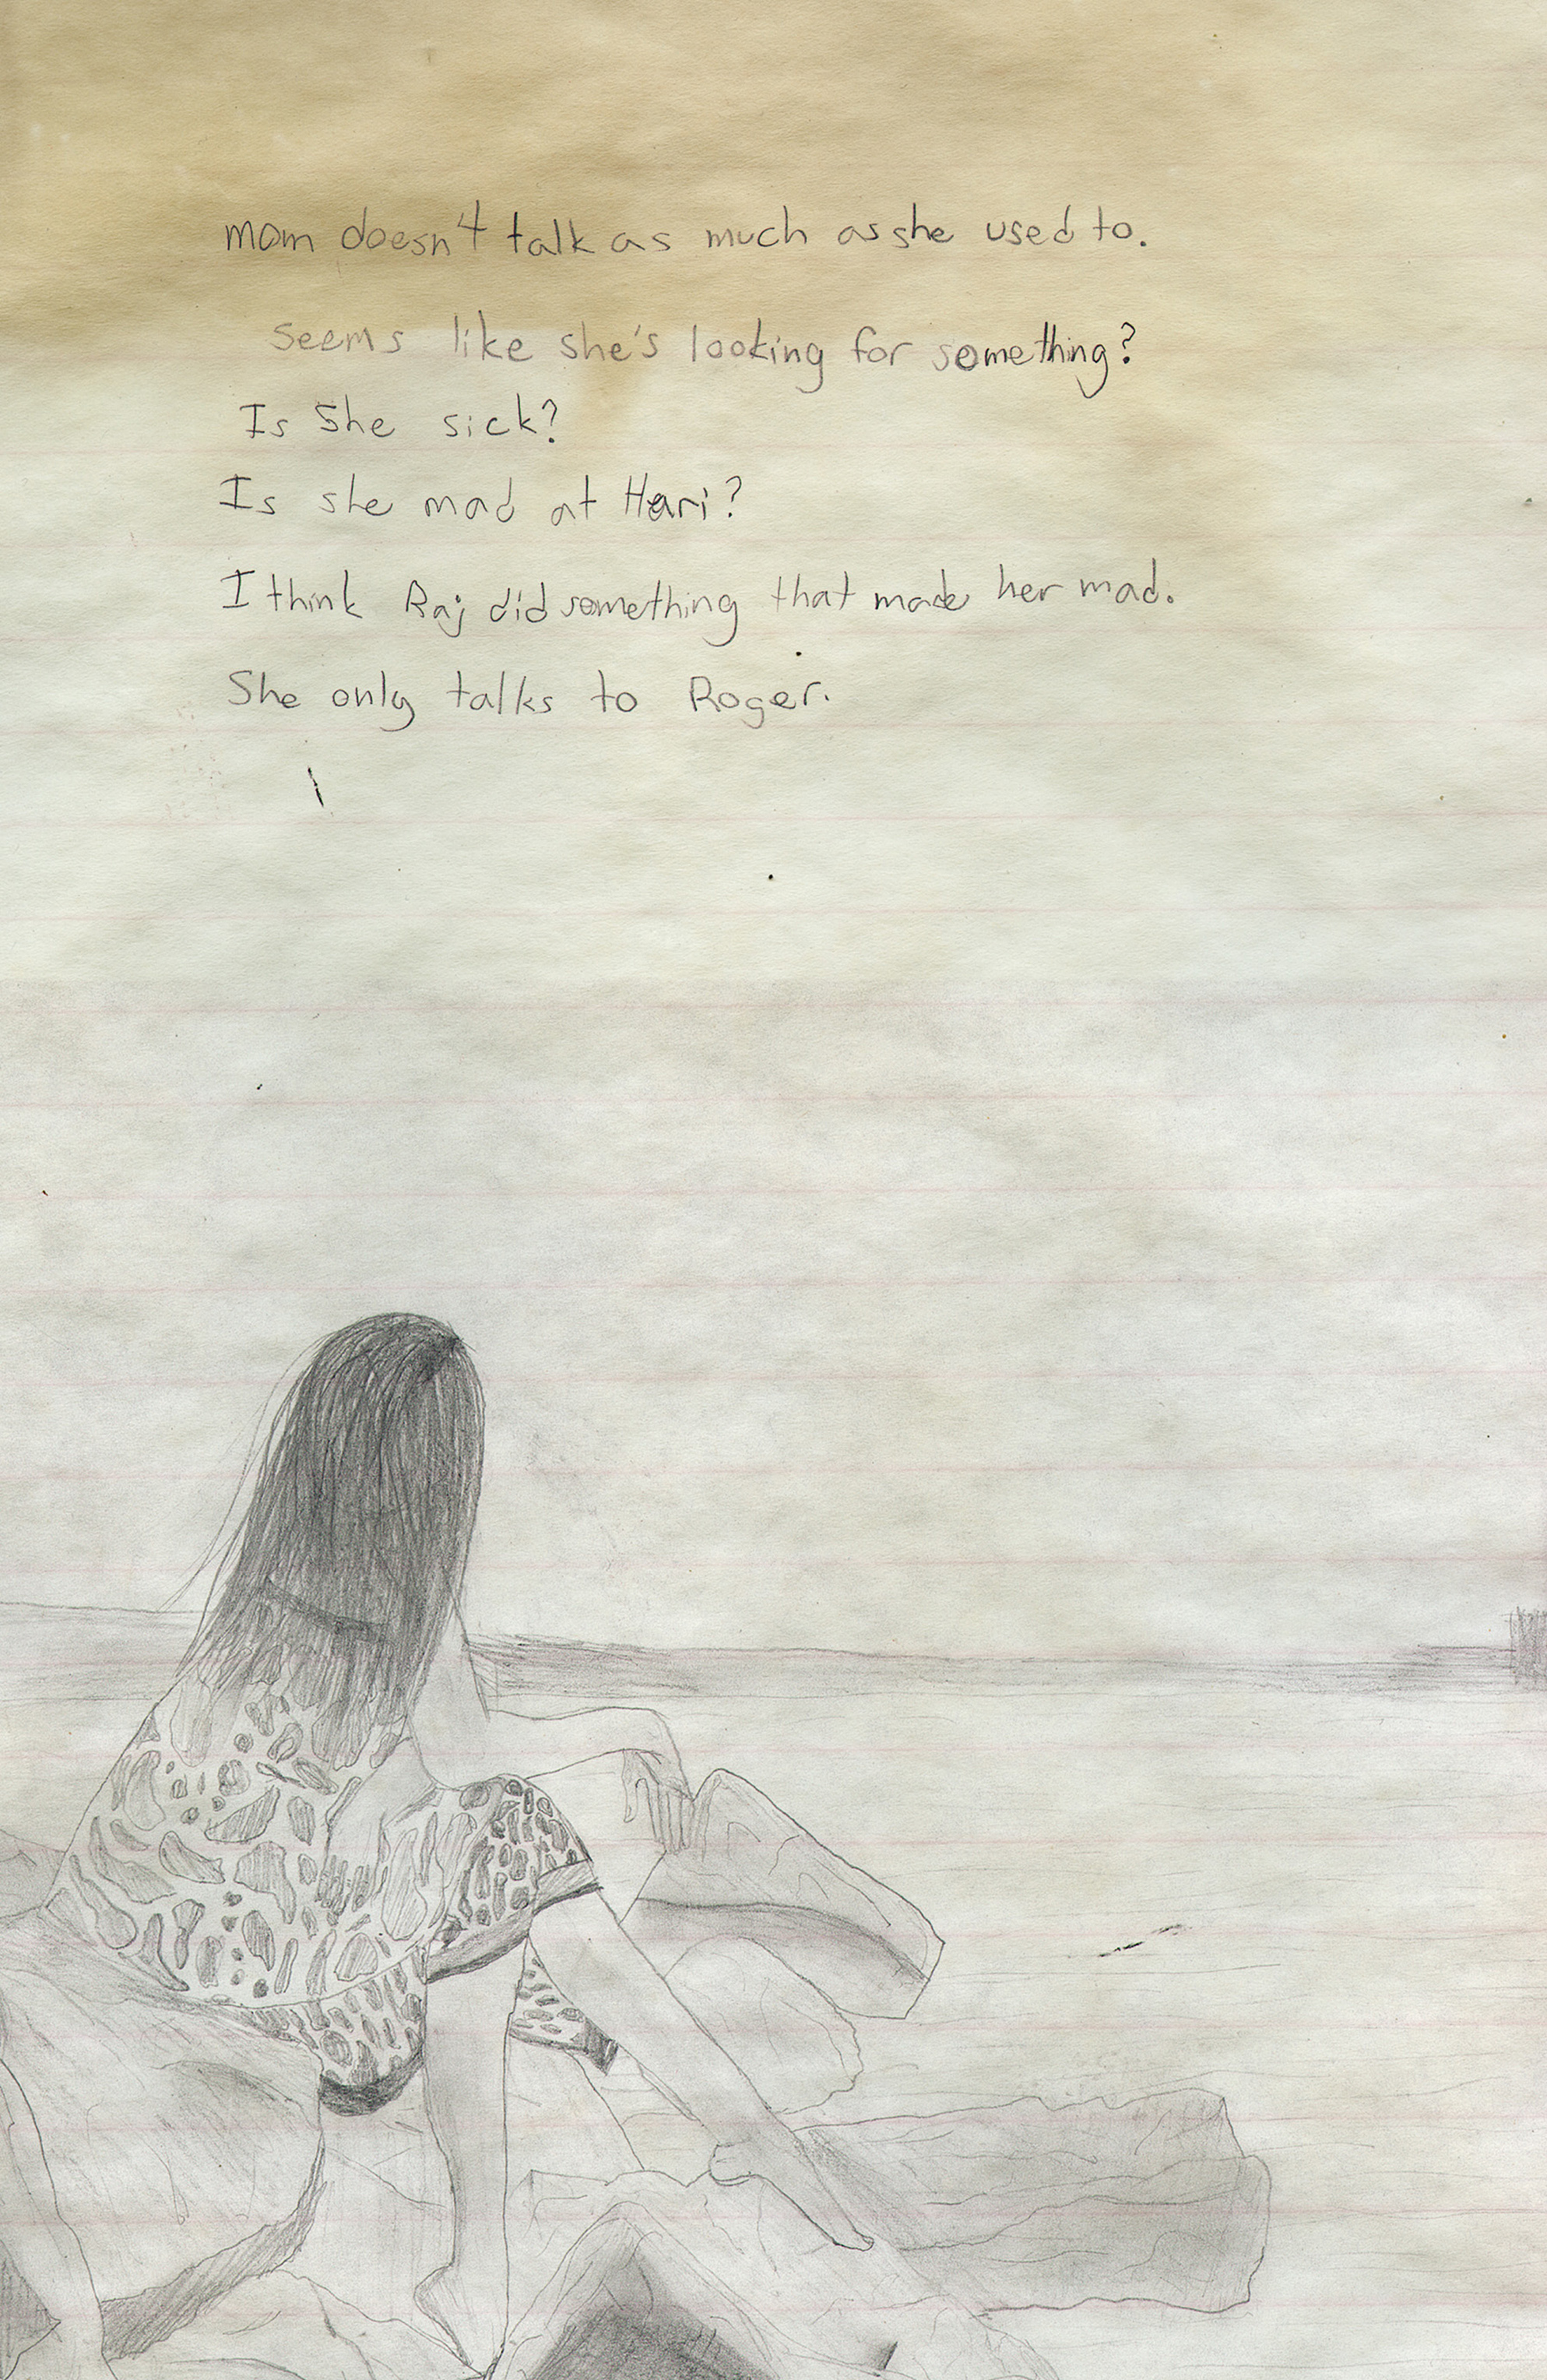 mom doesn't talk as much as she used to.
seems like she's looking for something?
Is she sick?
Is she mad at Hari?
I think Raj did something that made her mad.
She only talks to Roger.